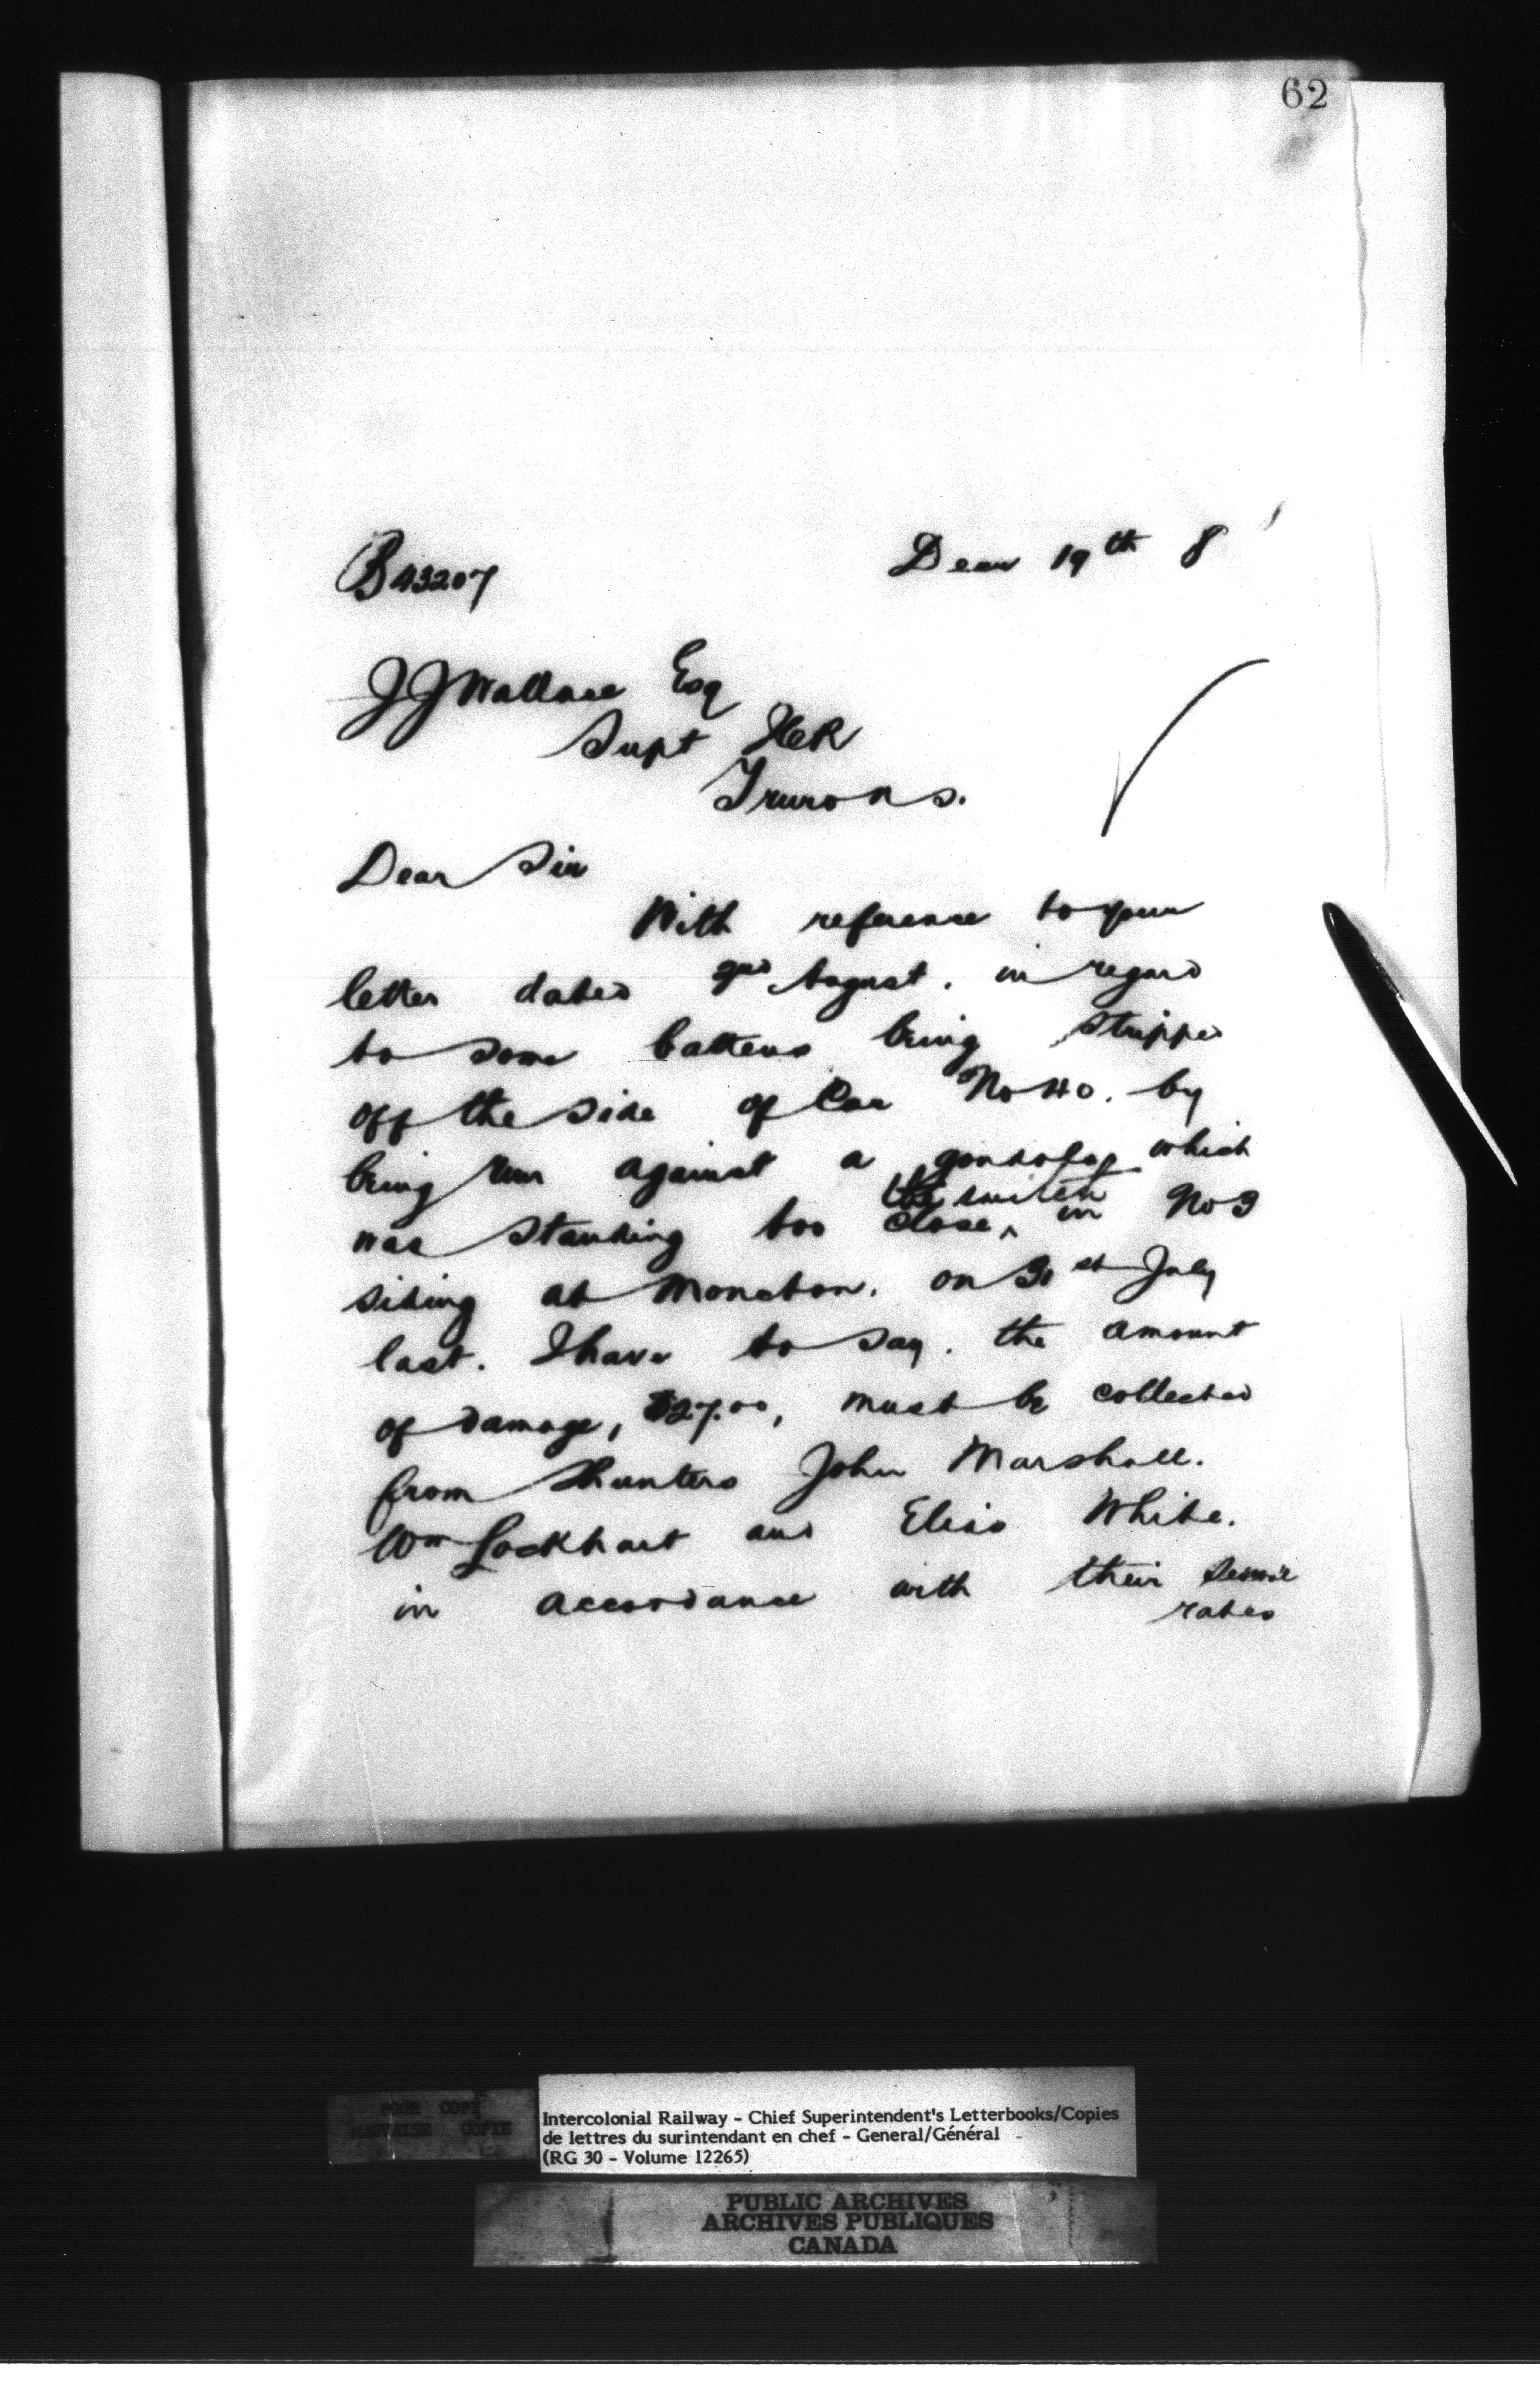 62
B43207
Decr 19th 8
J J Wallace Esq
Supt ICR
Truro N S.
Dear Sir
With reference to your
letter dated 2nd August. in regard
to some battens being stripped
off the side of Car No 40. by
being run against a gondola which
the switch
was standing too close ^ in No 3
siding at Moncton. on 31st July
last. I have to say. the amount
of damage, $27.00, must be collected
from Shunters John Marshall.
Wm Lockhart and White.
in accordance with their
rates
POOR COPY
MAUVAISE COPIE
Intercolonial Railway - Chief Superintendent's Letterbooks/Copies
de lettres du surintendant en chef - General/Général
(RG 30 - Volume 12265)
PUBLIC ARCHIVES
ARCHIVES PUBLIQUES
CANADA